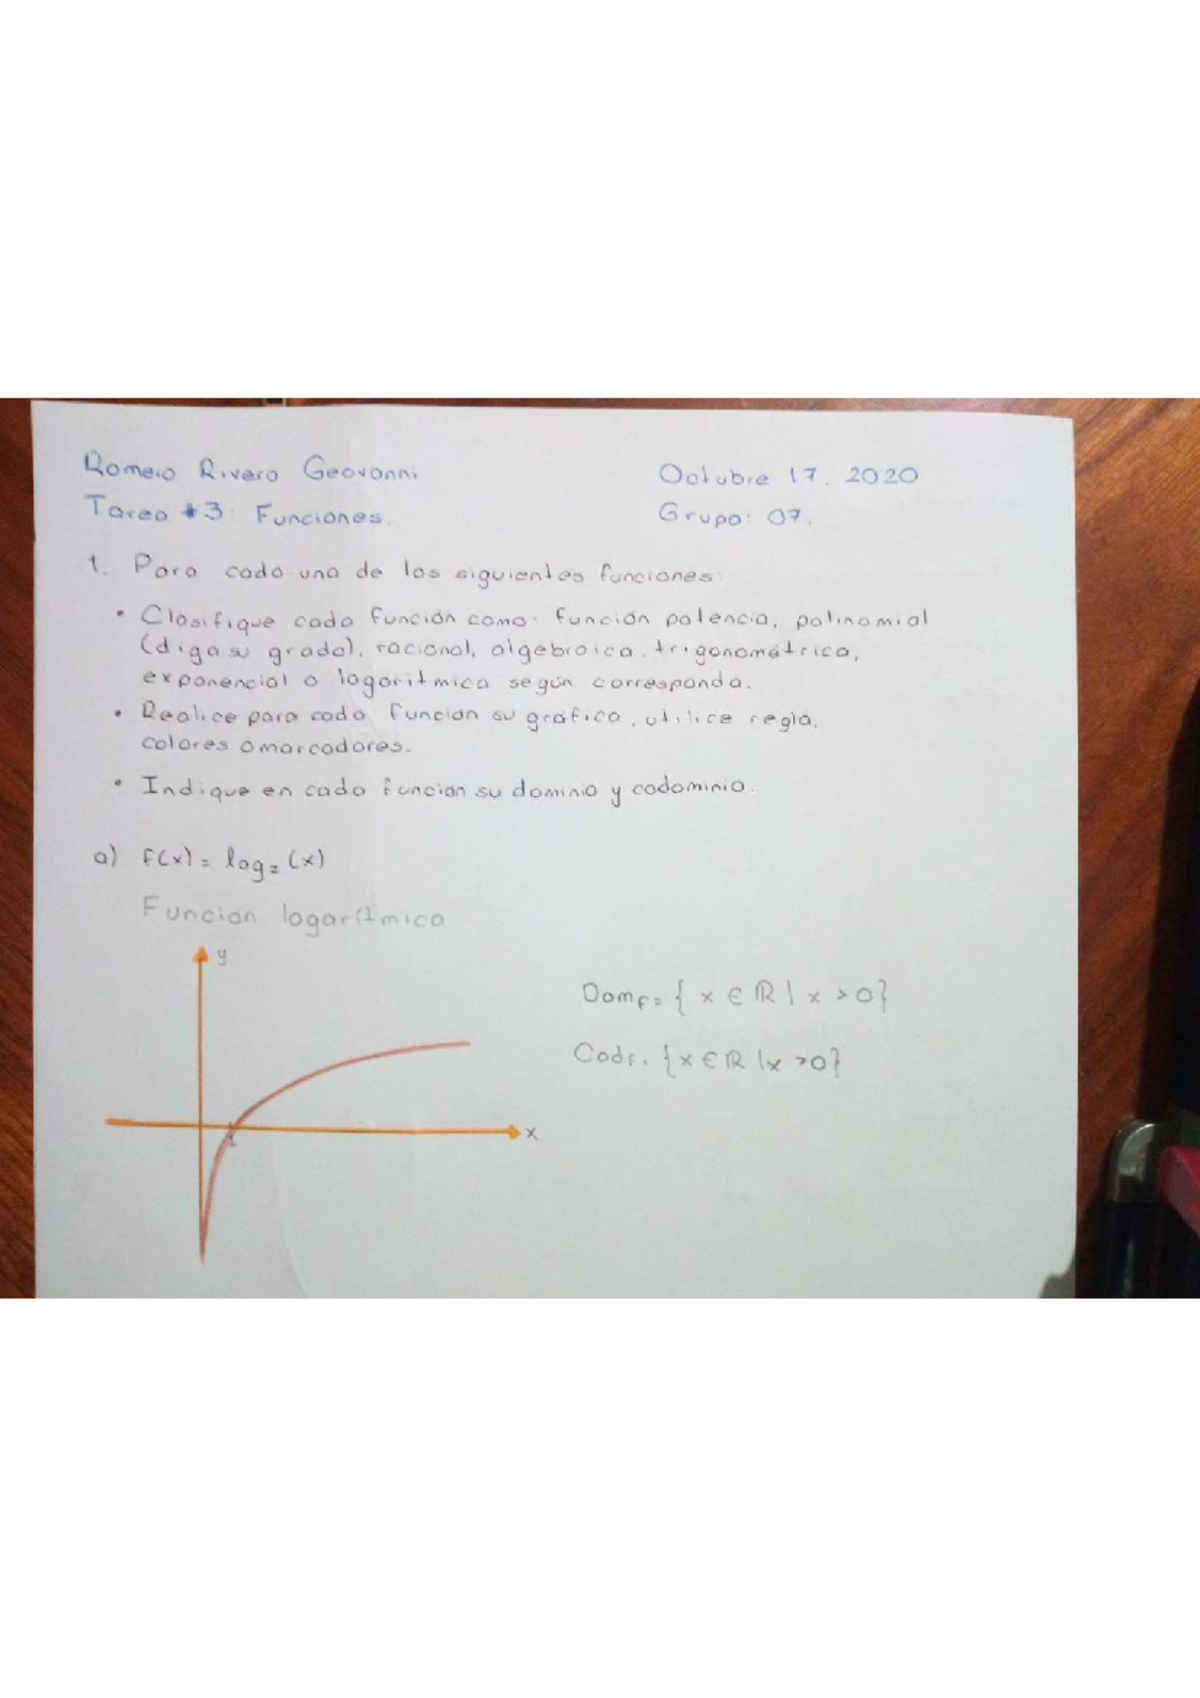 Romero Rivera Geovanni
Octubre 17, 2020
Tarea #3: Funciones.
Grupo: 07.
1. Para cada una de las siguientes funciones:
• Clasifique cada función como: función potencia, polinomial
(diga su grado), racional, algebraica, trigonométrica,
exponencial o logarítmica según corresponda.
• Realice para cada función su gráfica, utilice regla,
colores o marcadores.
• Indique en cada función su dominio y codominio.
a) f(x) = log₂ (x)
Función logarítmica
y
Domf = { x ∈ ℝ | x > 0}
Codf. {x ∈ ℝ | x > 0}
x
1